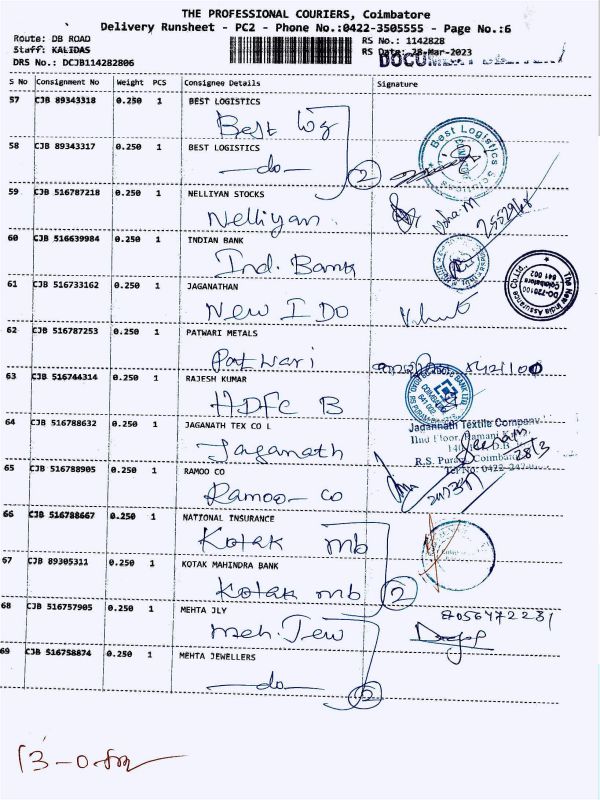 THE PROFESSIONAL COURIERS, Coimbatore
Delivery Runsheet - PC2 - Phone No.:0422-3505555 - Page No.:6
Route: DB ROAD
RS No.: 1142828
Staff: KALIDAS
RS Date: 28-Mar-2023
DRS No.: DCJB114282806
S No Consignment No Weight PCS Consignee Details Signature
57 CJB 89343318 0.250 1 BEST LOGISTICS
Best log
58 CJB 89343317 0.250 1 BEST LOGISTICS
Best Logistics
-do- 2
59 CJB 516787218 0.250 1 NELLIYAN STOCKS
Nelliyan
60 CJB 516639984 0.250 1 INDIAN BANK
Ind. Bank
The New India Assurance Co. Ltd.,
Coimbatore
641 002
61 CJB 516733162 0.250 1 JAGANATHAN
New I DO
62 CJB 516787253 0.250 1 PATWARI METALS
Patwari
63 CJB 516744314 0.250 1 RAJESH KUMAR
HDFC B
64 CJB 516788632 0.250 1 JAGANATH TEX CO L
Jaganath
Jagannath Textile Company
IInd Floor,
28/3
R.S. Puram, Coimbatore
Tel No: 0422-
65 CJB 516788905 0.250 1 RAMOO CO
Ramoo- co
66 CJB 516788667 0.250 1 NATIONAL INSURANCE
Kotak mb
67 CJB 89305311 0.250 1 KOTAK MAHINDRA BANK
Kotak mb 2
68 CJB 516757905 0.250 1 MEHTA JLY
Meh. Jew
69 CJB 516758874 0.250 1 MEHTA JEWELLERS
-do-